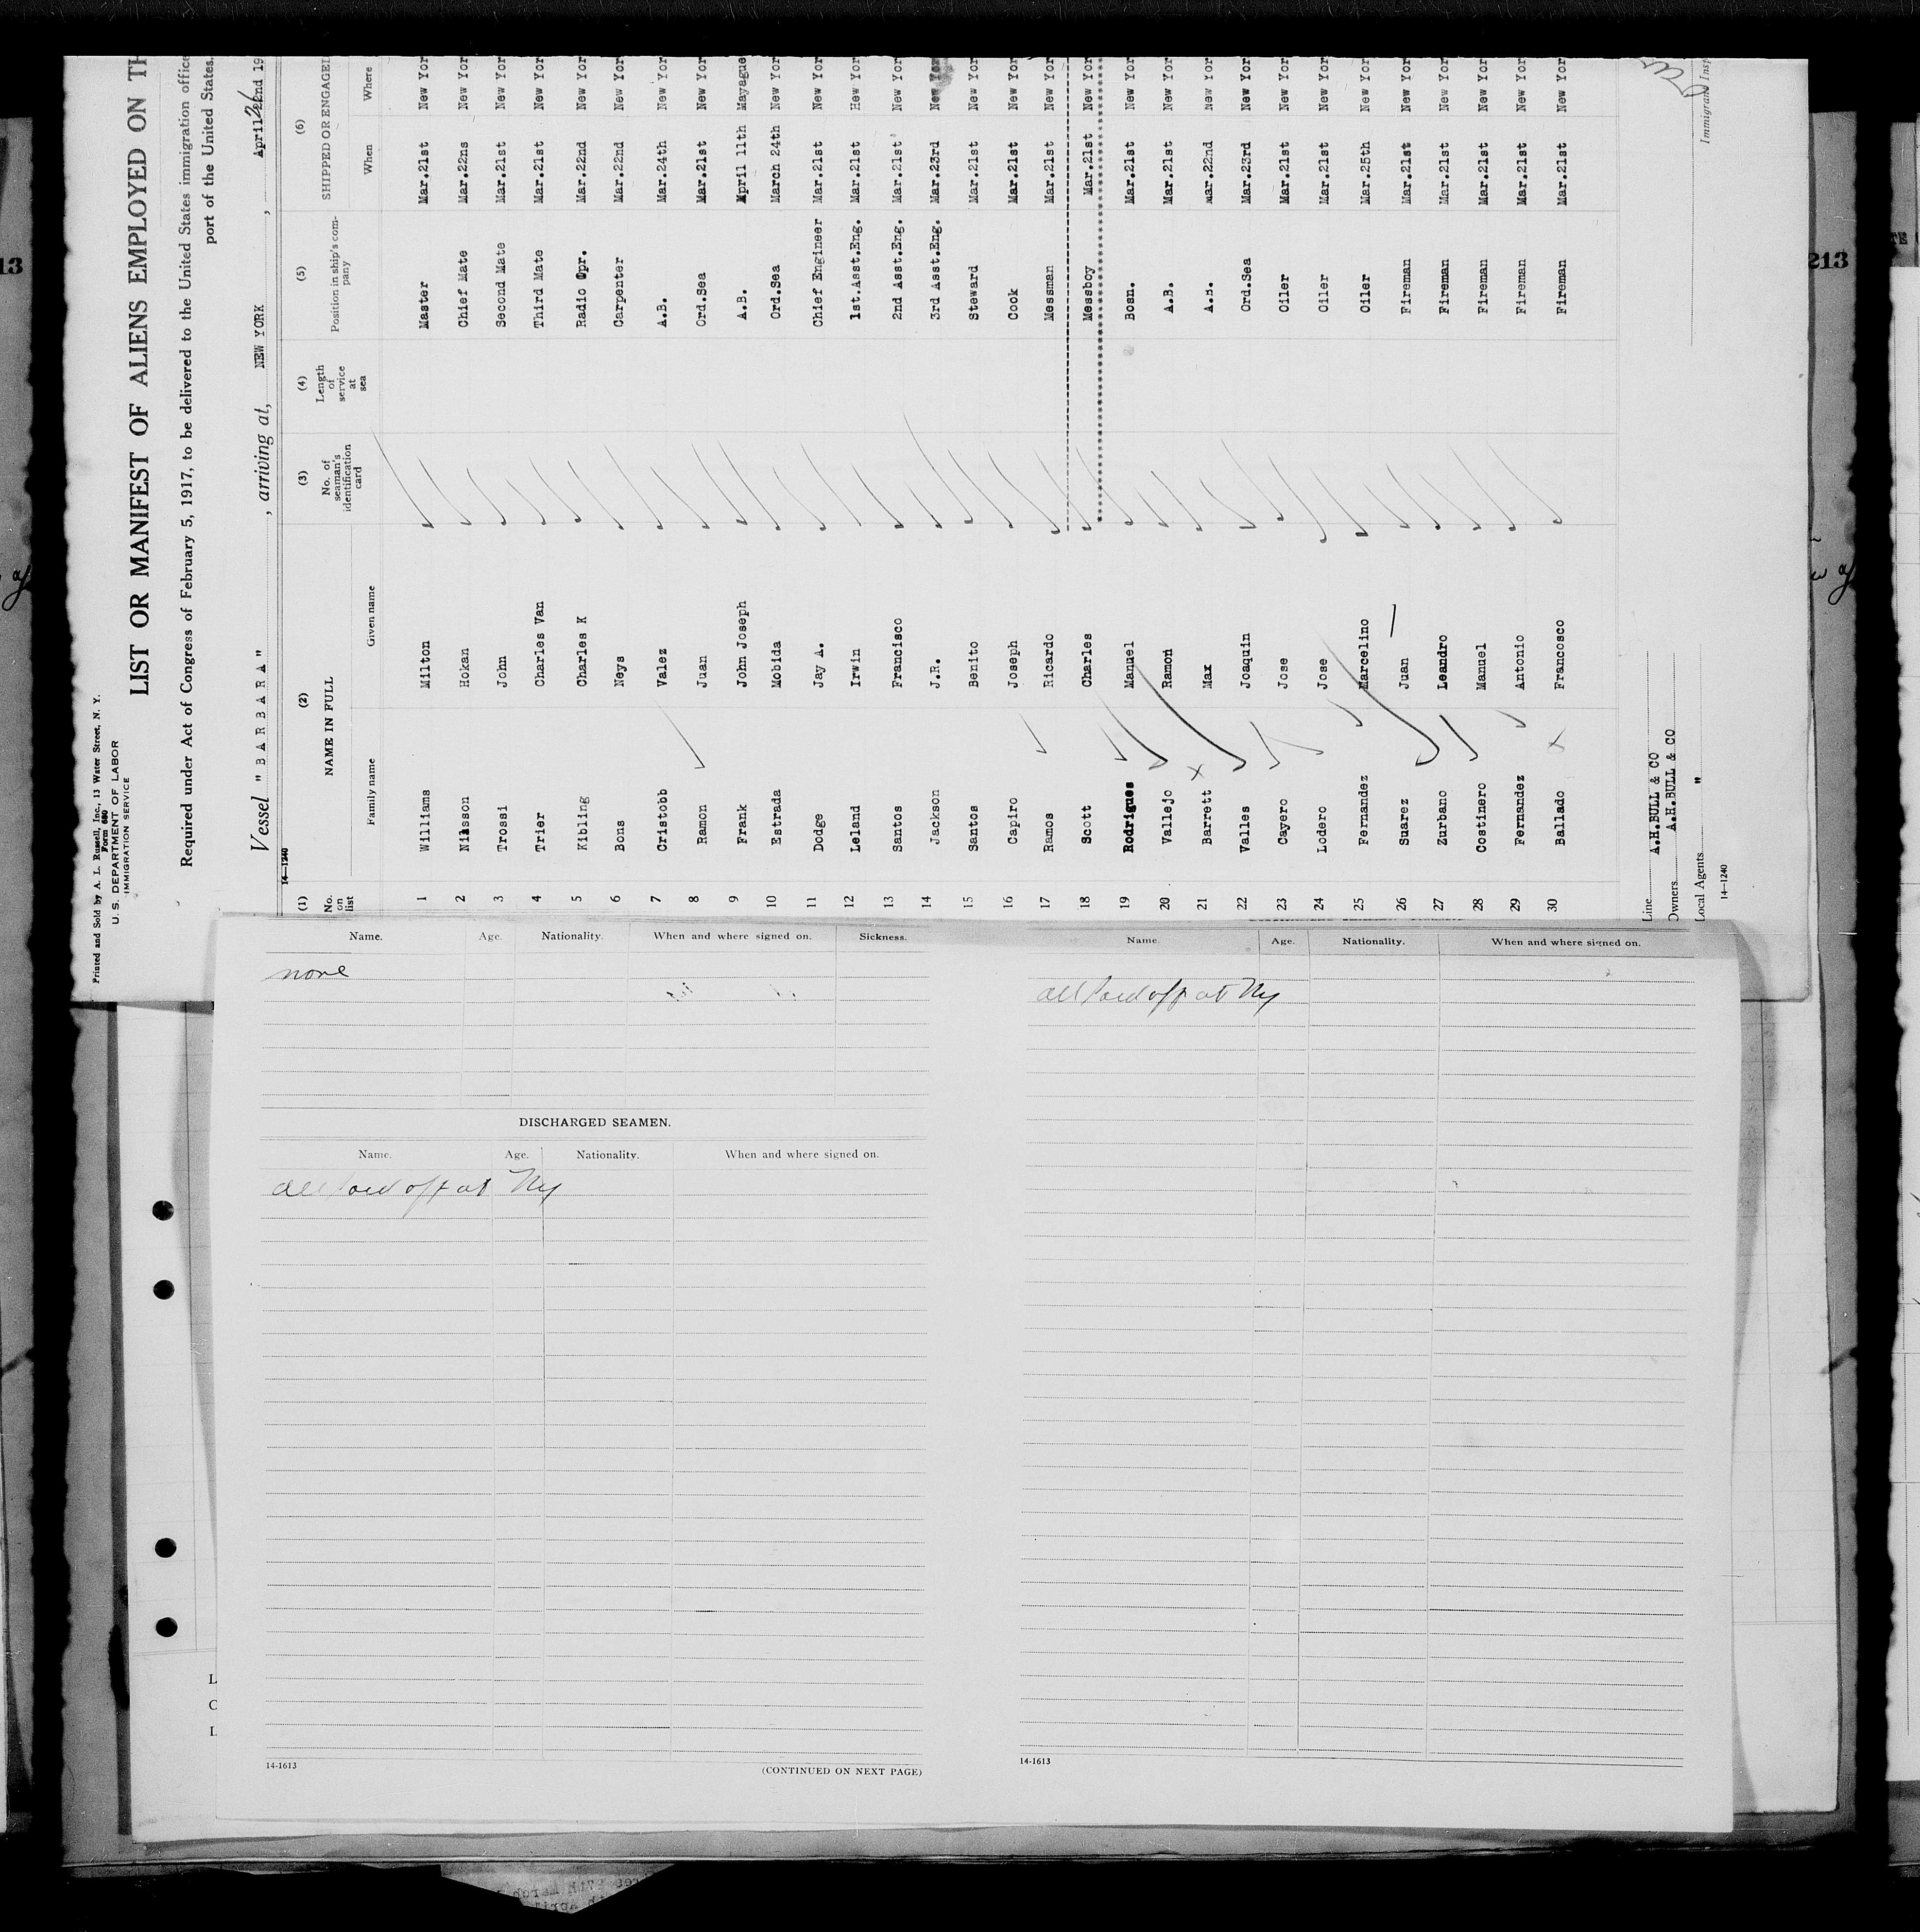 Printed and Sold by A. L. Russell, Inc., 13 Water Street, N. Y.
Form 680
U. S. DEPARTMENT OF LABOR
IMMIGRATION SERVICE
LIST OR MANIFEST OF ALIENS EMPLOYED ON TH
Required under Act of Congress of February 5, 1917, to be delivered to the United States immigration office
port of the United States.
Vessel "BARBARA" , arriving at, NEW YORK , April 22nd 19
14—1240
(1) (2) (3) (4) (5) (6)
No. on list NAME IN FULL No. of seaman's identification card Length of service at sea Position in ship's company SHIPPED OR ENGAGED
Family name Given name When Where
1 Williams Milton Master Mar.21st New Yor
2 Nilsson Hokan Chief Mate Mar.22ns New Yor
3 Trossi John Second Mate Mar.21st New Yor
4 Trier Charles Van Third Mate Mar.21st New Yor
5 Kibling Charles K Radio Opr. Mar.22nd New Yor
6 Bons Neys Carpenter Mar.22nd New Yor
7 Cristobb Valez A.B. Mar.24th New Yor
8 Ramon Juan Ord.Sea Mar.21st New Yor
9 Frank John Joseph A.B. April 11th Mayague
10 Estrada Mobida Ord.Sea March 24th New Yor
11 Dodge Jay A. Chief Engineer Mar.21st New Yor
12 Leland Irwin 1st.Asst.Eng. Mar.21st Hew Yor
13 Santos Francisco 2nd Asst.Eng. Mar.21st New Yor
14 Jackson J.R. 3rd Asst.Eng. Mar.23rd New Yor
15 Santos Benito Steward Mar.21st New Yor
16 Capiro Joseph Cook Mar.21st New Yor
17 Ramos Ricardo Messman Mar.21st New Yor
18 Scott Charles Messboy Mar.21st New Yor
19 Rodrigues Manuel Bosn. Mar.21st New Yor
20 Vallejo Ramon A.B. Mar.21st New Yor
21 Barrett Max A.B. Mar.22nd New Yor
22 Valles Joaquin Ord.Sea Mar.23rd New Yor
23 Cayero Jose Oiler Mar.21st New Yor
24 Lodero Jose Oiler Mar.21st New Yor
25 Fernandez Marcelino Oiler Mar.25th New Yor
26 Suarez Juan Fireman Mar.21st New Yor
27 Zurbano Leandro Fireman Mar.21st New Yor
28 Costinero Manuel Fireman Mar.21st New Yor
29 Fernandez Antonio Fireman Mar.21st New Yor
30 Ballado Francosco Fireman Mar.21st New Yor
Line A.H.BULL & CO
Owners A.H.BULL & CO
Local Agents "
Immigrant Insp
14—1240
Name. Age. Nationality. When and where signed on. Sickness.
none
DISCHARGED SEAMEN.
Name. Age. Nationality. When and where signed on.
all paid off at Ny
14-1613
(CONTINUED ON NEXT PAGE)
Name. Age. Nationality. When and where signed on.
all paid off at Ny
14-1613
13
213